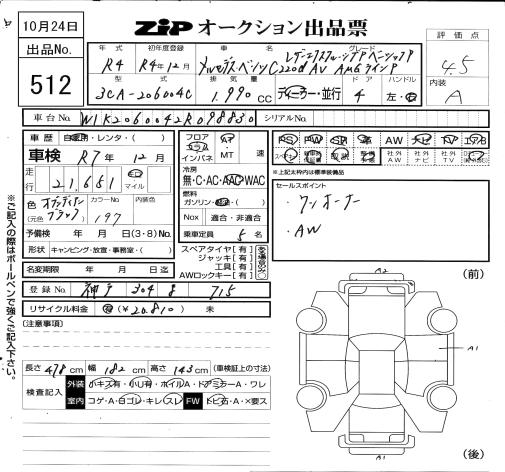 10月24日
出品No.
512
ZIP オークション出品票
評価点
4.5
内装
A
年式 初年度登録 車名 グレード
R4 R4年12月 メルセデス・ベンツ C220d AV AMGラインP
型式 排気量 ドア ハンドル
3CA-206004C 1,990cc ディーラー・並行 4 左・右
車台No. W1K2060042R098830 シリアルNo.
車歴 自家用・レンタ・( )
車検 R7年12月
走行 21,651 km マイル
色 オブシディアンブラック カラーNo. 197 内装色
(元色 )
予備検 年 月 日(3・8)No.
形状 キャンピング・放宣・事務室・( )
名変期限 年 月 日迄
フロア コラム インパネ AT ・MT 速
冷房 無・C・AC・AAC・WAC
燃料
ガソリン・軽・( )
Nox 適合・非適合
乗車定員 5名
スペアタイヤ【有】
ジャッキ【有】
工具【有】
AWロックキー【有】
PS PW SR 革 AW ナビ TV エアB
取説 社外AW 社外ナビ 社外TV
※上記太わくは標準装備品
セールスポイント
・ワンオーナー
・AW
登録No. 神戸 304 る 715
リサイクル料金 済(¥20,810) 未
【注意事項】
長さ478cm 幅182cm 高さ143cm (車検証上の寸法)
検査記入 外装 小キズ有・小U有・ホイルA・ドアミラーA・ワレ
室内 コゲ・A・ヨゴレ・キレ・スレ FW トビ石・A・X要ス
※ご記入の際はボールペンで強くご記入下さい。
(前)
A2
A1
A1
(後)